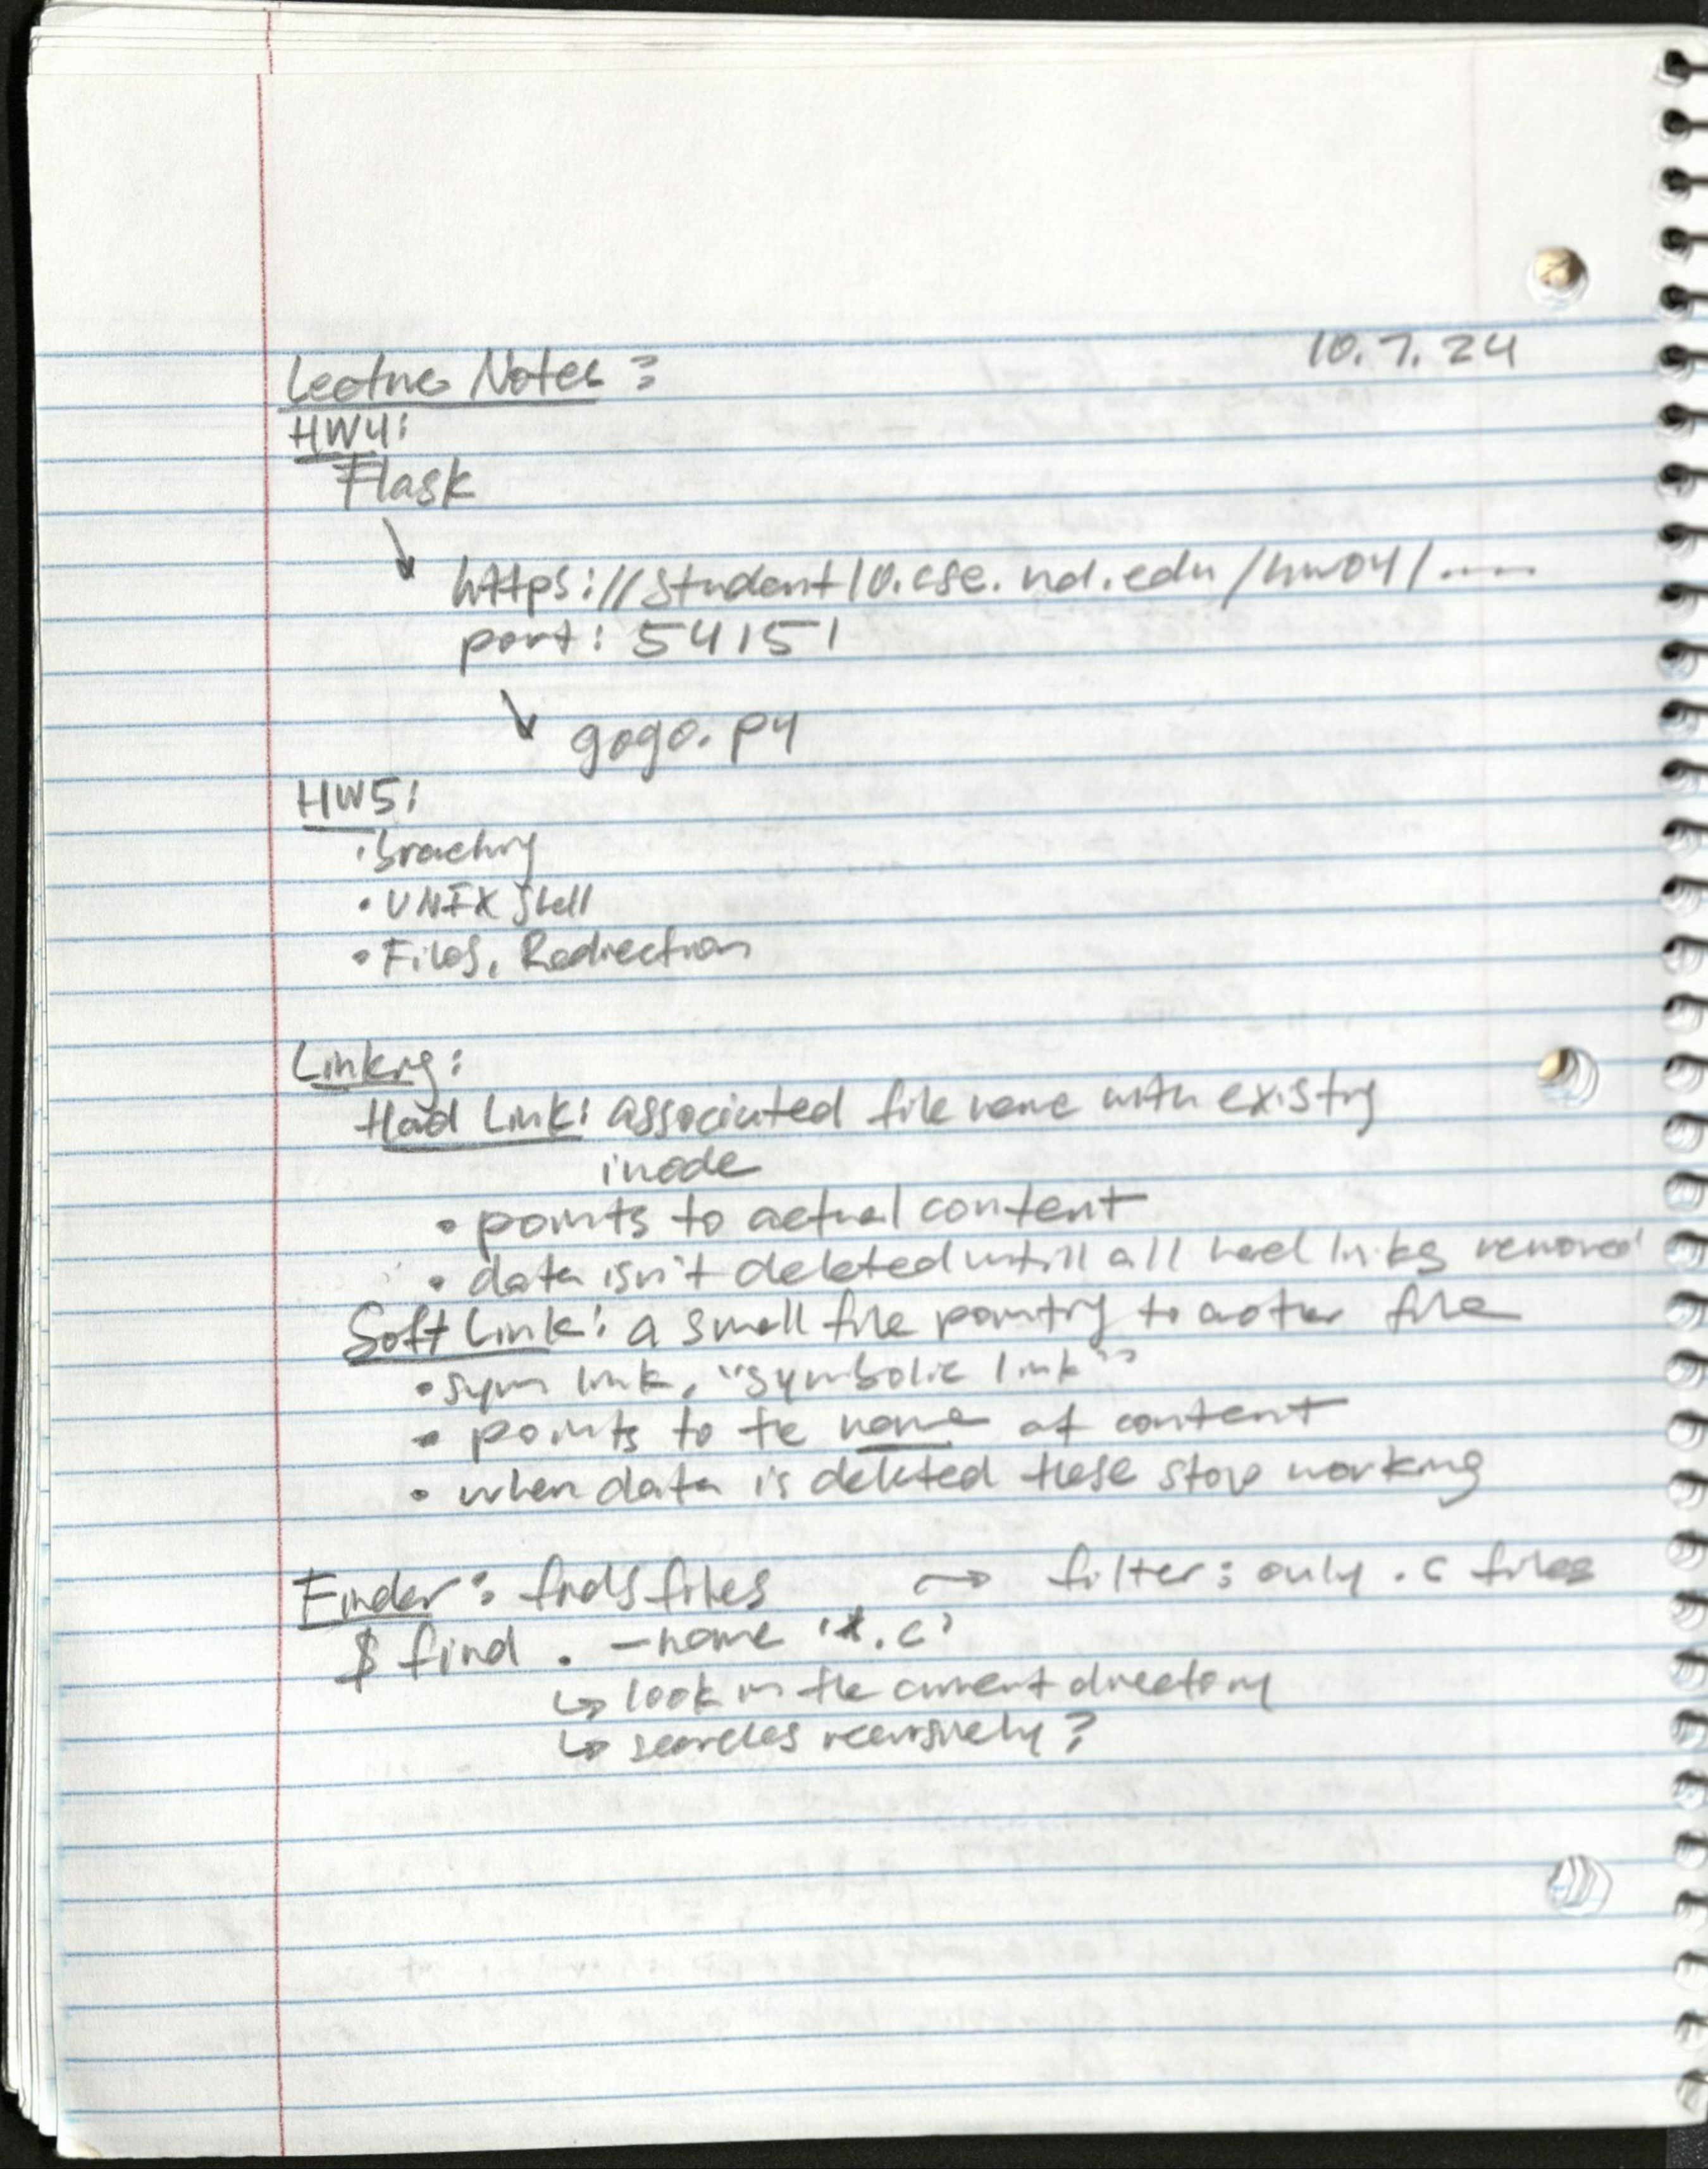 10.7.24
Lecture Notes:
HW4:
Flask
https://student10.cse.nd.edu/hw04/.....
port: 54151
gogo.py
HW5:
• UNIX Shell
• Files, Redirection
Linking:
Hard Link: associated file name with existing
inode
• points to actual content
• data isn't deleted untill all hard links removed
Soft Link: a small file pointing to another file
• sym link, "symbolic link"
• points to the name of content
• when data is deleted these stop working
Finder: finds files → filter: only .c files
$ find . -name '*.c'
↳ look in the current directory
↳ searches recursively?